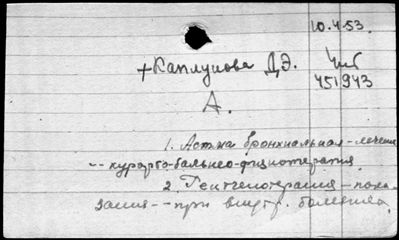 10.4.53.
+Каплунова Д.Э.
451943
А.
1. Астма бронхиальная - лечение
-- курорто-бальнео-физиотерапия
2. Рентгенотерапия - пока-
зания -- при внутр. болезнях